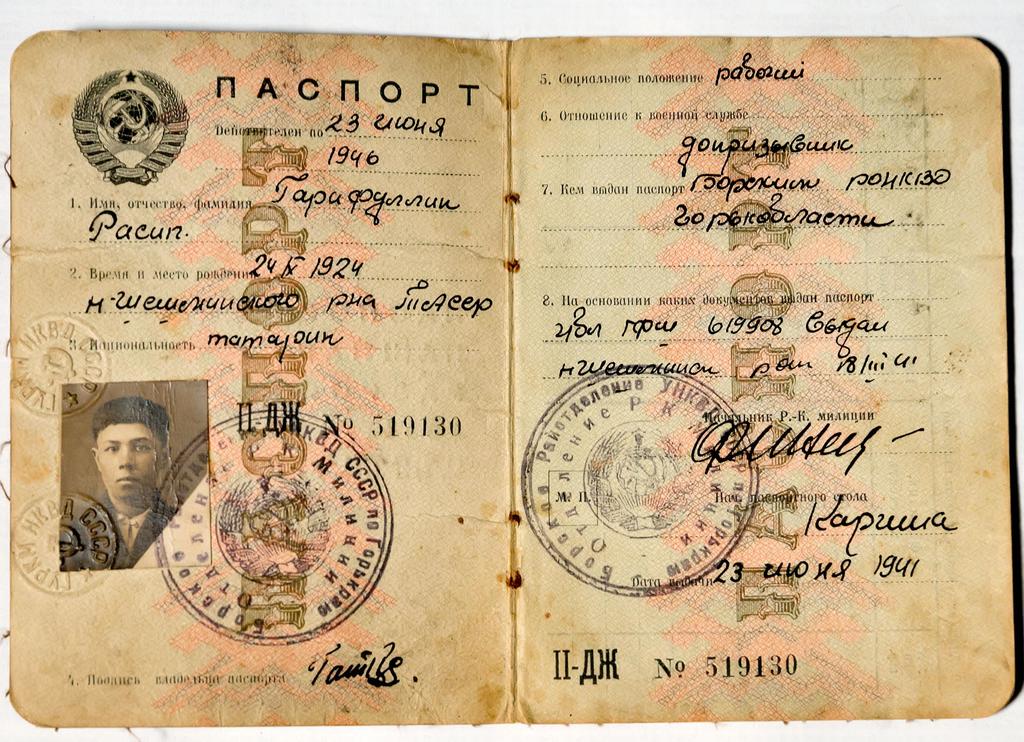 ПАСПОРТ
Действителен по 23 июня
1946
1. Имя, отчество, фамилия Гарифуллин
Расип.
2. Время и место рождения 24 IX 1924
н-Шешминского р-на ТАССР
3. Национальность татарин
II-ДЖ № 519130
4. Подпись владельца паспорта
5. Социальное положение рабочий
6. Отношение к военной службе
допризывник
7. Кем выдан паспорт Борским РОНКВД
Горьк области
8. На основании каких документов выдан паспорт
619908 выдан
18/III 41
Начальник Р.-К. милиции
М. П.
Нач. паспортного стола
Дата выдачи 23 июня 1941
II-ДЖ № 519130
Борское Райотделение УНКВД СССР по Горькраю
Отделение Р К Милиции
ГУРКМ НКВД СССР
ГУРКМ НКВД СССР
Борское Райотделение УНКВД
Отделение Р К Милиции